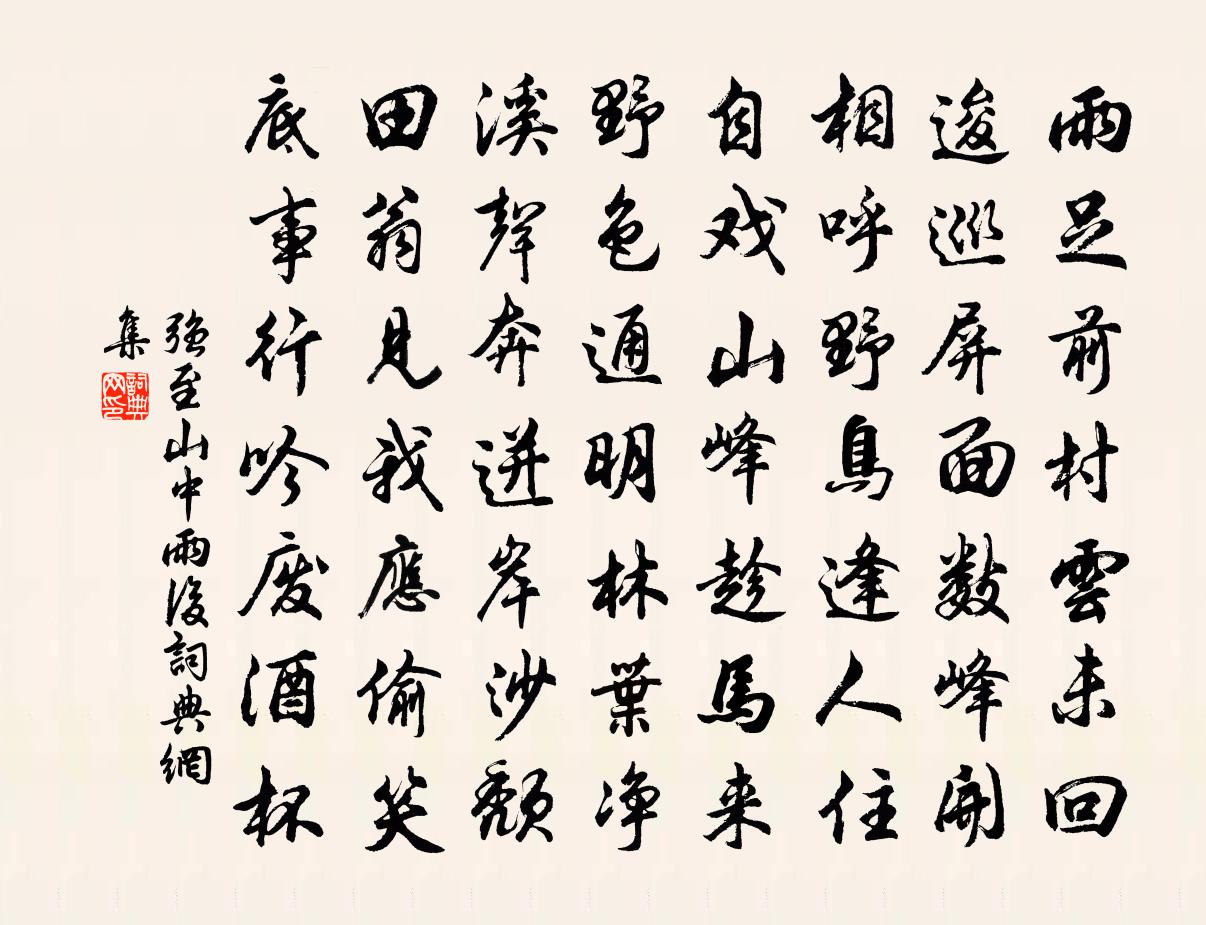 雨足前村雲未回
逡巡屏面數峰開
相呼野鳥逢人住
自戏山峰趁馬来
野色通明林葉净
溪聲奔迸岸沙頹
田翁見我應偷笑
底事行吟廢酒杯
強至山中雨後詞典網
集
詞典
网印